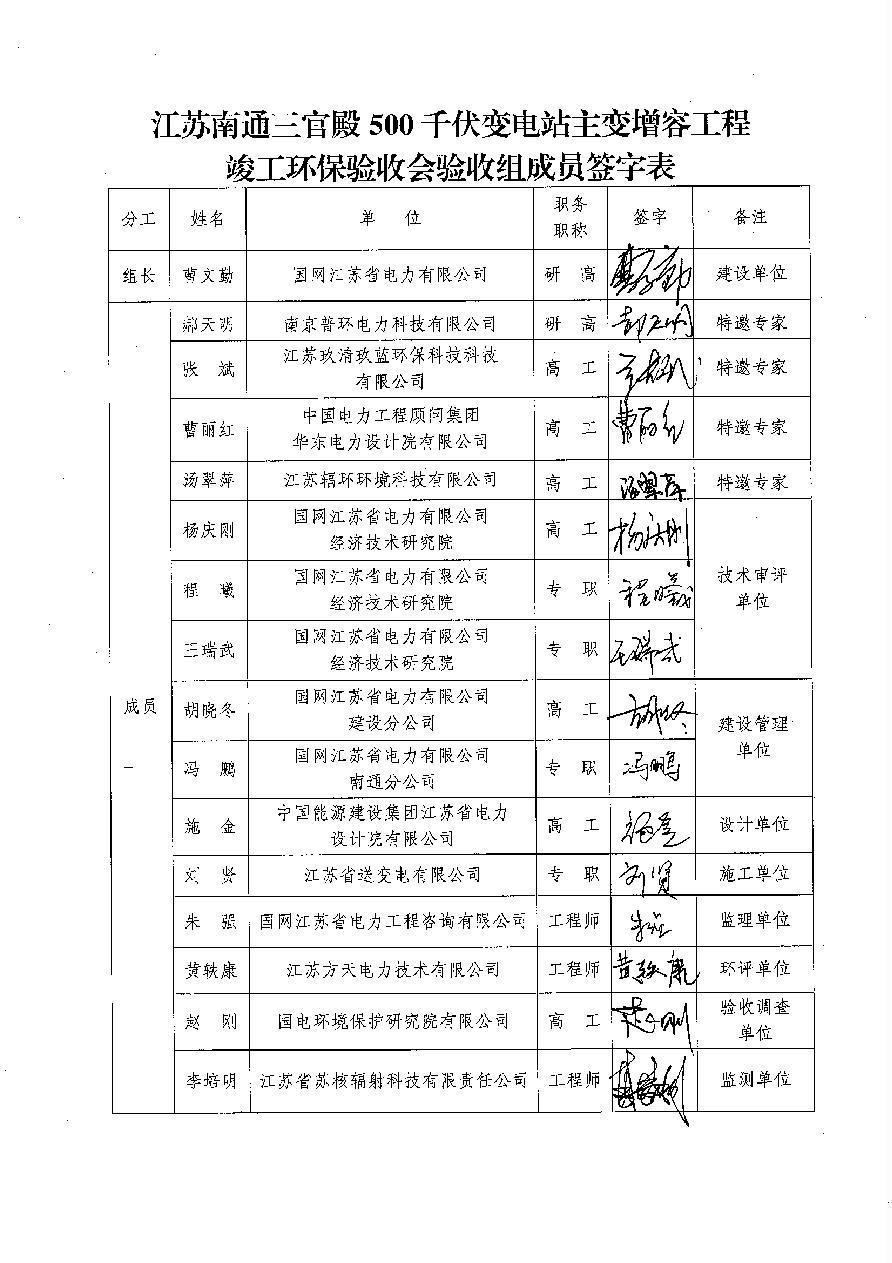 江苏南通三官殿 500 千伏变电站主变增容工程
竣工环保验收会验收组成员签字表
分工 姓名 单 位 职务 职称 签字 备注
组长 曹文勤 国网江苏省电力有限公司 研 高 建设单位
郝天明 南京普环电力科技有限公司 研 高 特邀专家
张 斌 江苏玖清玖蓝环保科技科技 有限公司 高 工 特邀专家
曹丽红 中国电力工程顾问集团 华东电力设计院有限公司 高 工 曹丽红 特邀专家
汤翠萍 江苏辐环环境科技有限公司 高 工 汤翠萍 特邀专家
杨庆刚 国网江苏省电力有限公司 经济技术研究院 高 工 杨庆刚 技术审评 单位
程 曦 国网江苏省电力有限公司 经济技术研究院 专 职 程曦
王瑞武 国网江苏省电力有限公司 经济技术研究院 专 职 王瑞武
成员
胡晓冬 国网江苏省电力有限公司 建设分公司 高 工 建设管理 单位
冯 鹏 国网江苏省电力有限公司 南通分公司 专 职 冯鹏
施 金 中国能源建设集团江苏省电力 设计院有限公司 高 工 设计单位
刘 贤 江苏省送变电有限公司 专 职 刘贤 施工单位
朱 强 国网江苏省电力工程咨询有限公司 工程师 朱强 监理单位
黄轶康 江苏方天电力技术有限公司 工程师 黄轶康 环评单位
赵 刚 国电环境保护研究院有限公司 高 工 赵刚 验收调查 单位
李培明 江苏省苏核辐射科技有限责任公司 工程师 监测单位